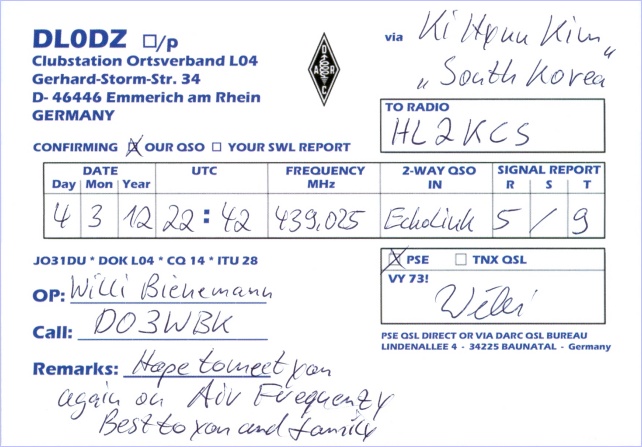 DL0DZ □/p
Clubstation Ortsverband L04
Gerhard-Storm-Str. 34
D- 46446 Emmerich am Rhein
GERMANY
DARC
via Ki Hyun Kim
„South Korea"
TO RADIO
HL2KCS
CONFIRMING ☒ OUR QSO □ YOUR SWL REPORT
DATE UTC FREQUENCY 2-WAY QSO SIGNAL REPORT
Day Mon Year MHz IN R S T
4 3 12 22:42 439,025 Echolink 5 / 9
JO31DU * DOK L04 * CQ 14 * ITU 28
OP: Willi Bienemann
Call: DO3WBK
Remarks: Hope to meet you
again on Air Frequenzy
Best to you and family
☒ PSE □ TNX QSL
VY 73!
Willi
PSE QSL DIRECT OR VIA DARC QSL BUREAU
LINDENALLEE 4 - 34225 BAUNATAL - Germany